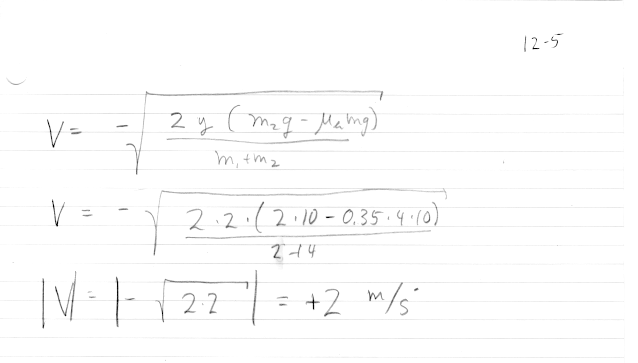 12-5
V = - √(2y(m₂g - μₖmg) / (m₁+m₂))
V = - √(2·2·(2·10 - 0.35·4·10) / (2+4))
|V| = |- √(2·2)| = +2 m/s